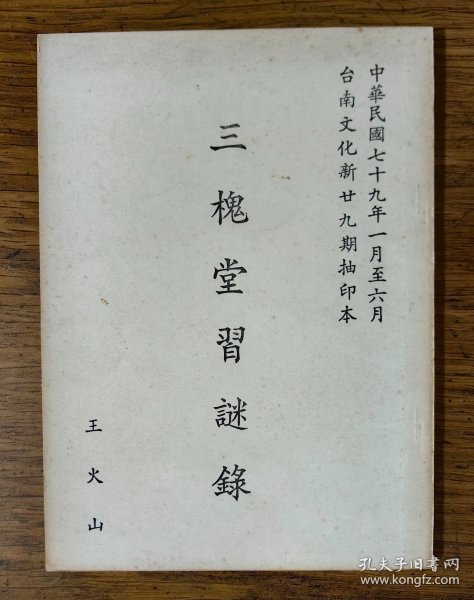 中華民國七十九年一月至六月
台南文化新廿九期抽印本
三槐堂習謎錄
王火山
孔夫子旧书网
www.kongfz.com